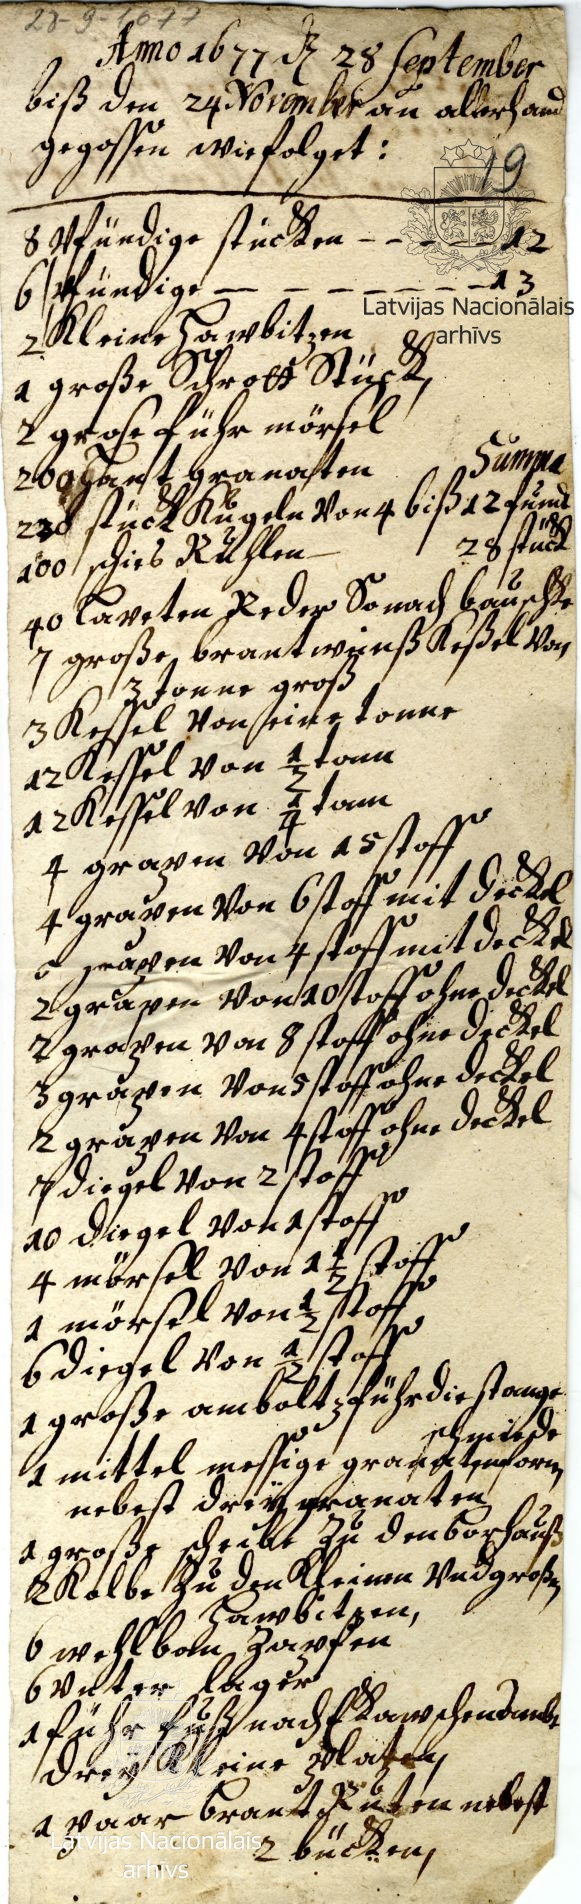 28-9-1677
Anno 1677 dz 28 September
biß den 24 November an allerhand
gegossen wie folget:
19
8 Pfündige stücken - - - - - 12
6 Pfündige - - - - - - - 13
Latvijas Nacionālais
arhīvs
2 Kleine Hawbitzen
1 große Schrott Stück,
2 groseführ mörsel
200 Hant granaten Summa
230 stück Kugeln Von 4 biß 12 fund
100 schies Kuhlen 28 stück
40 Laveten Reder So nach bauschke
7 große brantweinß Keßel Von
3 tonne groß
3 Kessel Von eine tonne
12 Kessel von 1/2 tonn
12 Kessel von 1/4 tonn
4 grapen Von 15 stoff
4 grapen Von 6 stoff mit deckel
6 grapen Von 4 stoff mit deckel
2 grapen Von 10 stoff ohne deckel
2 grapen von 8 stoff ohne deckel
3 grapen Von 5 stoff ohne deckel
2 grapen Von 4 stoff ohne deckel
7 diegel Von 2 stoff
10 diegel Von 1 stoff
4 mörsel Von 1 1/2 stoff
1 mörsel von 1/2 stoff
6 diegel Von 1/2 stoff
1 große amboltz führ die stangen
schmiede
1 mittel messige granaten form
nebest dreÿ granaten
1 große scheibe Zu den borhauß
2 Kolbe Zu den Kleinen Vnd großen
Hawbitzen,
6 wehlbom Zapfen
6 Vnter lager
1 führ fuß nach
dreÿ Kleine platen,
1 paar brant Ruten nebest
2 bücken,
Latvijas Nacionālais
arhīvs